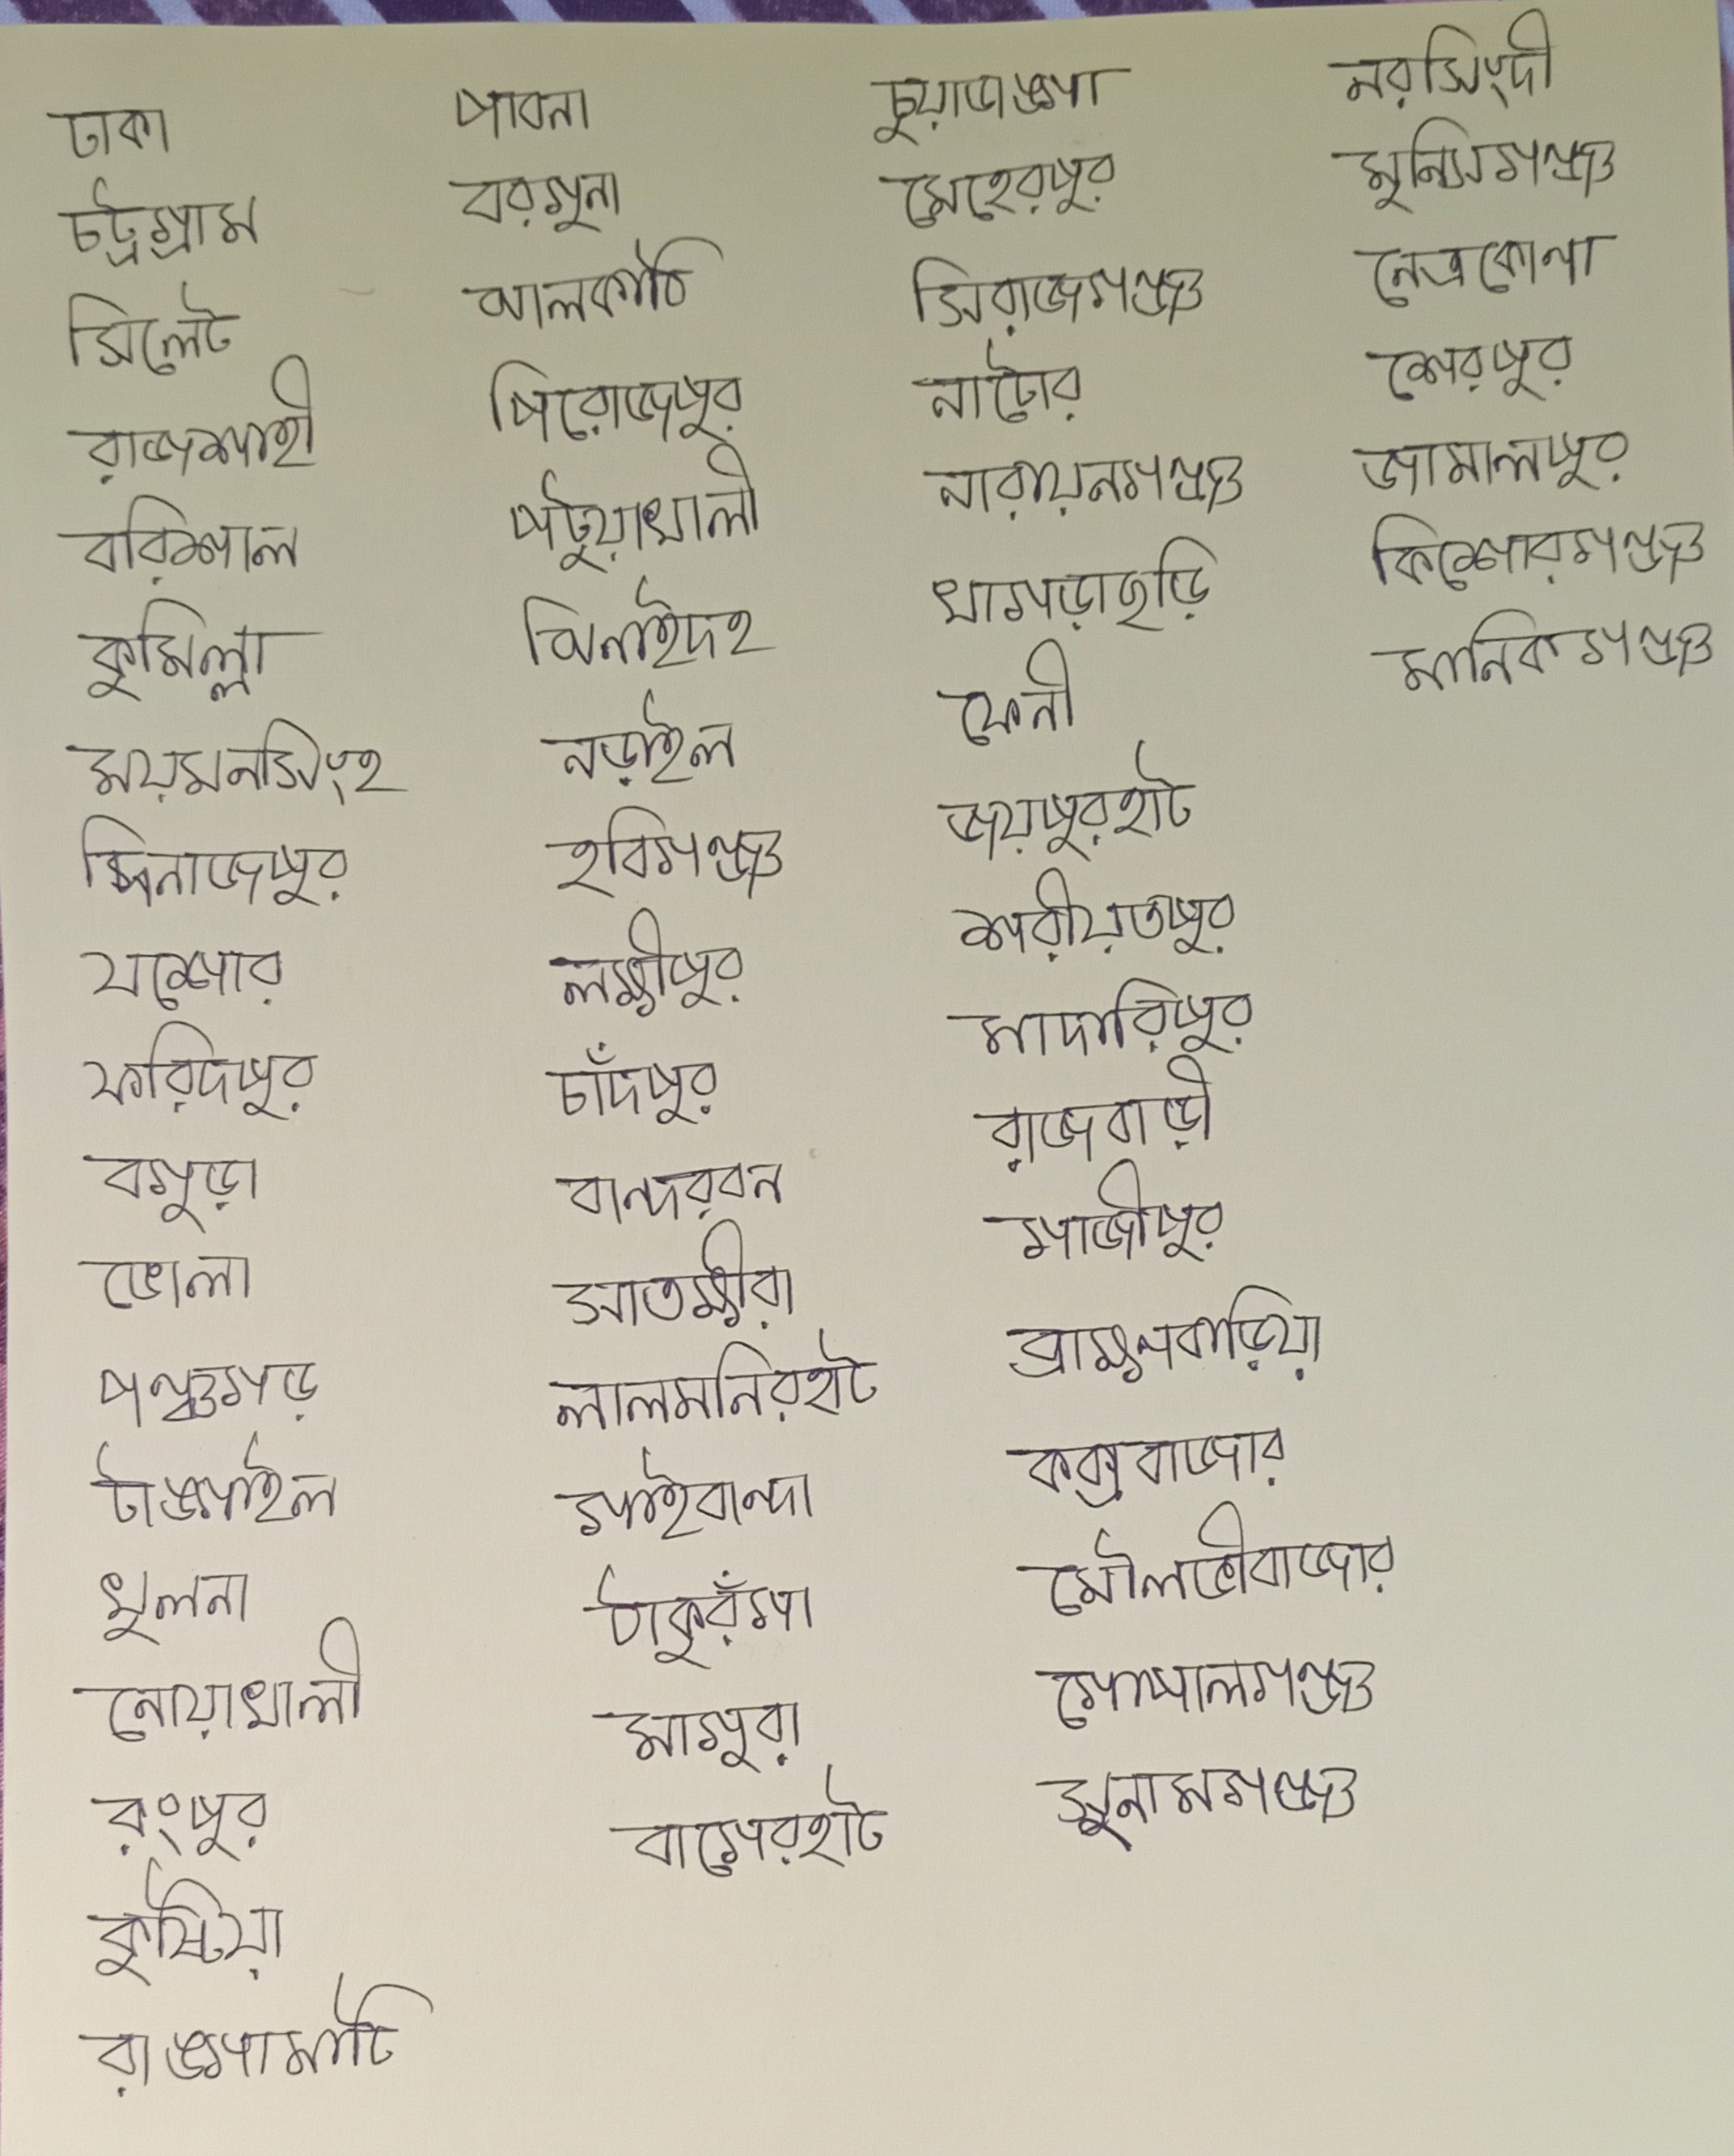 ঢাকা
চট্রগ্রাম
সিলেট
রাজশাহী
বরিশাল
কুমিল্লা
ময়মনসিংহ
দিনাজপুর
যশোর
ফরিদপুর
বগুড়া
ভোলা
পঞ্চগড়
টাঙ্গাইল
খুলনা
নোয়াখালী
রংপুর
কুষ্টিয়া
রাঙ্গামাটি
পাবনা
বরগুনা
ঝালকাঠি
পিরোজপুর
পটুয়াখালী
ঝিনাইদহ
নড়াইল
হবিগঞ্জ
লক্ষীপুর
চাঁদপুর
বান্দরবন
সাতক্ষীরা
লালমনিরহাট
গাইবান্দা
ঠাকুরঁগা
মাগুরা
বাগেরহাট
চুয়াডাঙ্গা
মেহেরপুর
সিরাজগঞ্জ
নাটোর
নারায়নগঞ্জ
খাগড়াছড়ি
ফেনী
জয়পুরহাট
শরীয়তপুর
মাদারিপুর
রাজবাড়ী
গাজীপুর
ব্রাক্ষণবাড়িয়া
কক্সবাজার
মৌলভীবাজার
গোপালগঞ্জ
সুনামগঞ্জ
নরসিংদী
মুন্সিগঞ্জ
নেত্রকোনা
শেরপুর
জামালপুর
কিশোরগঞ্জ
মানিকগঞ্জ